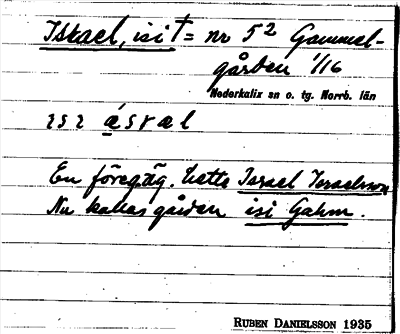 Iskael, isi † = nr 52 Gammel-
gården 1/16
Nederkalix sn o. tg. Norrb. län
ısı ásræl
En föregåg. hette Israel Israelsson
Nu kallas gården isi Gahm.
RUBEN DANIELSSON 1935